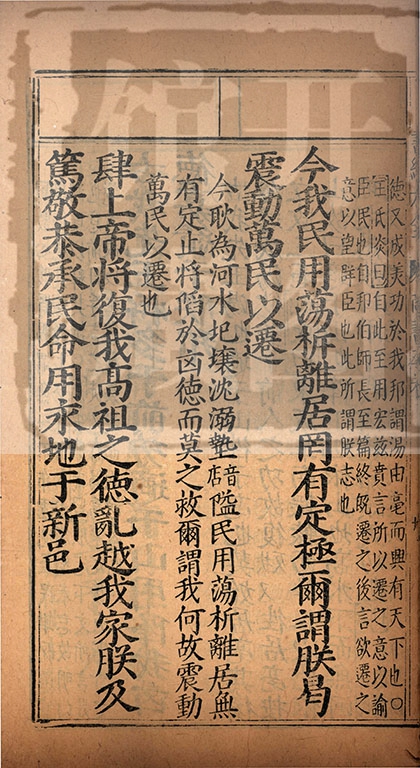 德又成美功於我邦謂湯由亳而興有天下也○
王氏炎曰自此至用宏兹賁言所以遷之意以諭
臣民也自邦伯師長至篇終旣遷之後言欲遷之
意以望羣臣也此所謂朕志也
今我民用蕩析離居罔有定極爾謂朕曷
震動萬民以遷
今耿為河水圮壞沈溺墊音店隘民用蕩析離居無
有定止將陷於凶德而莫之救爾謂我何故震動
萬民以遷也
肆上帝將復我高祖之德亂越我家朕及
篤敬恭承民命用永地于新邑